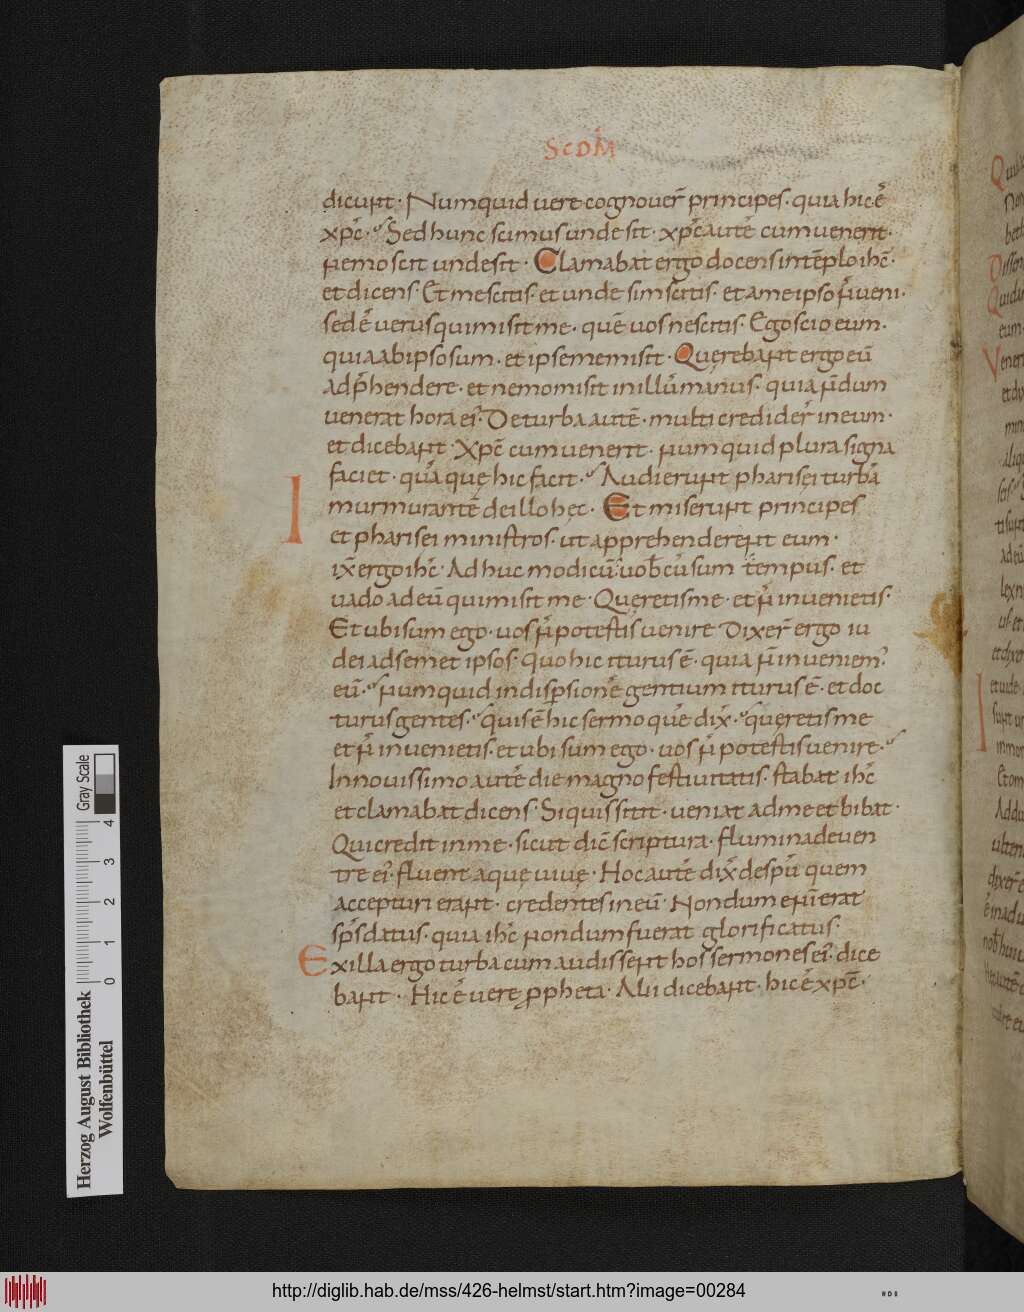 SCDM̄
dicunt · Numquid vere cognouer̄ principes · quia hic ē
xp̄c · Sed hunc scimus unde sit · xp̄c autē cum uenerit ·
nemo scit unde sit · Clamabat ergo docens in tēplo ih̄c ·
et dicens · Et me scitis · et unde sim scitis · et a me ipso n̄ veni ·
sed ē verus qui misit me · quē vos nescitis · Ego scio eum ·
quia ab ipso sum · et ipse me misit · Querebant ergo eū
adp̄hendere · et nemo misit in illū manus · quia n̄dum
venerat hora ei᾽ · De turba autē · multi credider̄ in eum ·
et dicebant · Xp̄c cum venerit · numquid plura signa
faciet · quā que hic facit · Audierunt pharisei turbā
murmurantē de illo hęc · Et miserunt principes
et pharisei ministros · ut apprehenderent eum ·
ix̄ ergo ih̄c · Adhuc modicū vob̄cū sum tempus · et
I
vado ad eū qui misit me · Queretis me · et n̄ invenietis ·
Et ubi sum ego · vos n̄ potestis venire Dixer̄ ergo iu
dei ad semet ipsos · quo hic iturus ē · quia n̄ inveniem᾽
eū · numquid in disp̄sionē gentium iturus ē · et doc
turus gentes · quis ē hic sermo quē dix̄ · queretis me
et n̄ invenietis · et ubi sum ego · vos n̄ potestis venire ·
In novissimo autē die magno festivitatis · stabat ih̄c
et clamabat dicens · Si quis sitit · veniat ad me et bibat ·
Qui credit in me · sicut dic̄ scriptura · flumina de ven
tre ei᾽ · fluent aquę vivę · Hoc autē dix̄ de spū quem
accepturi erant · credentes in eū · Nondum enī erat
sp̄s datus · quia ih̄c nondum fuerat glorificatus ·
Ex illa ergo turba cum audissent hos sermones ei᾽ · dice
bant · Hic ē vere ꝓpheta · Alii dicebant · hic ē xp̄c ·
Gray Scale
4
3
2
1
0
Herzog August Bibliothek
Wolfenbüttel
http://diglib.hab.de/mss/426-helmst/start.htm?image=00284